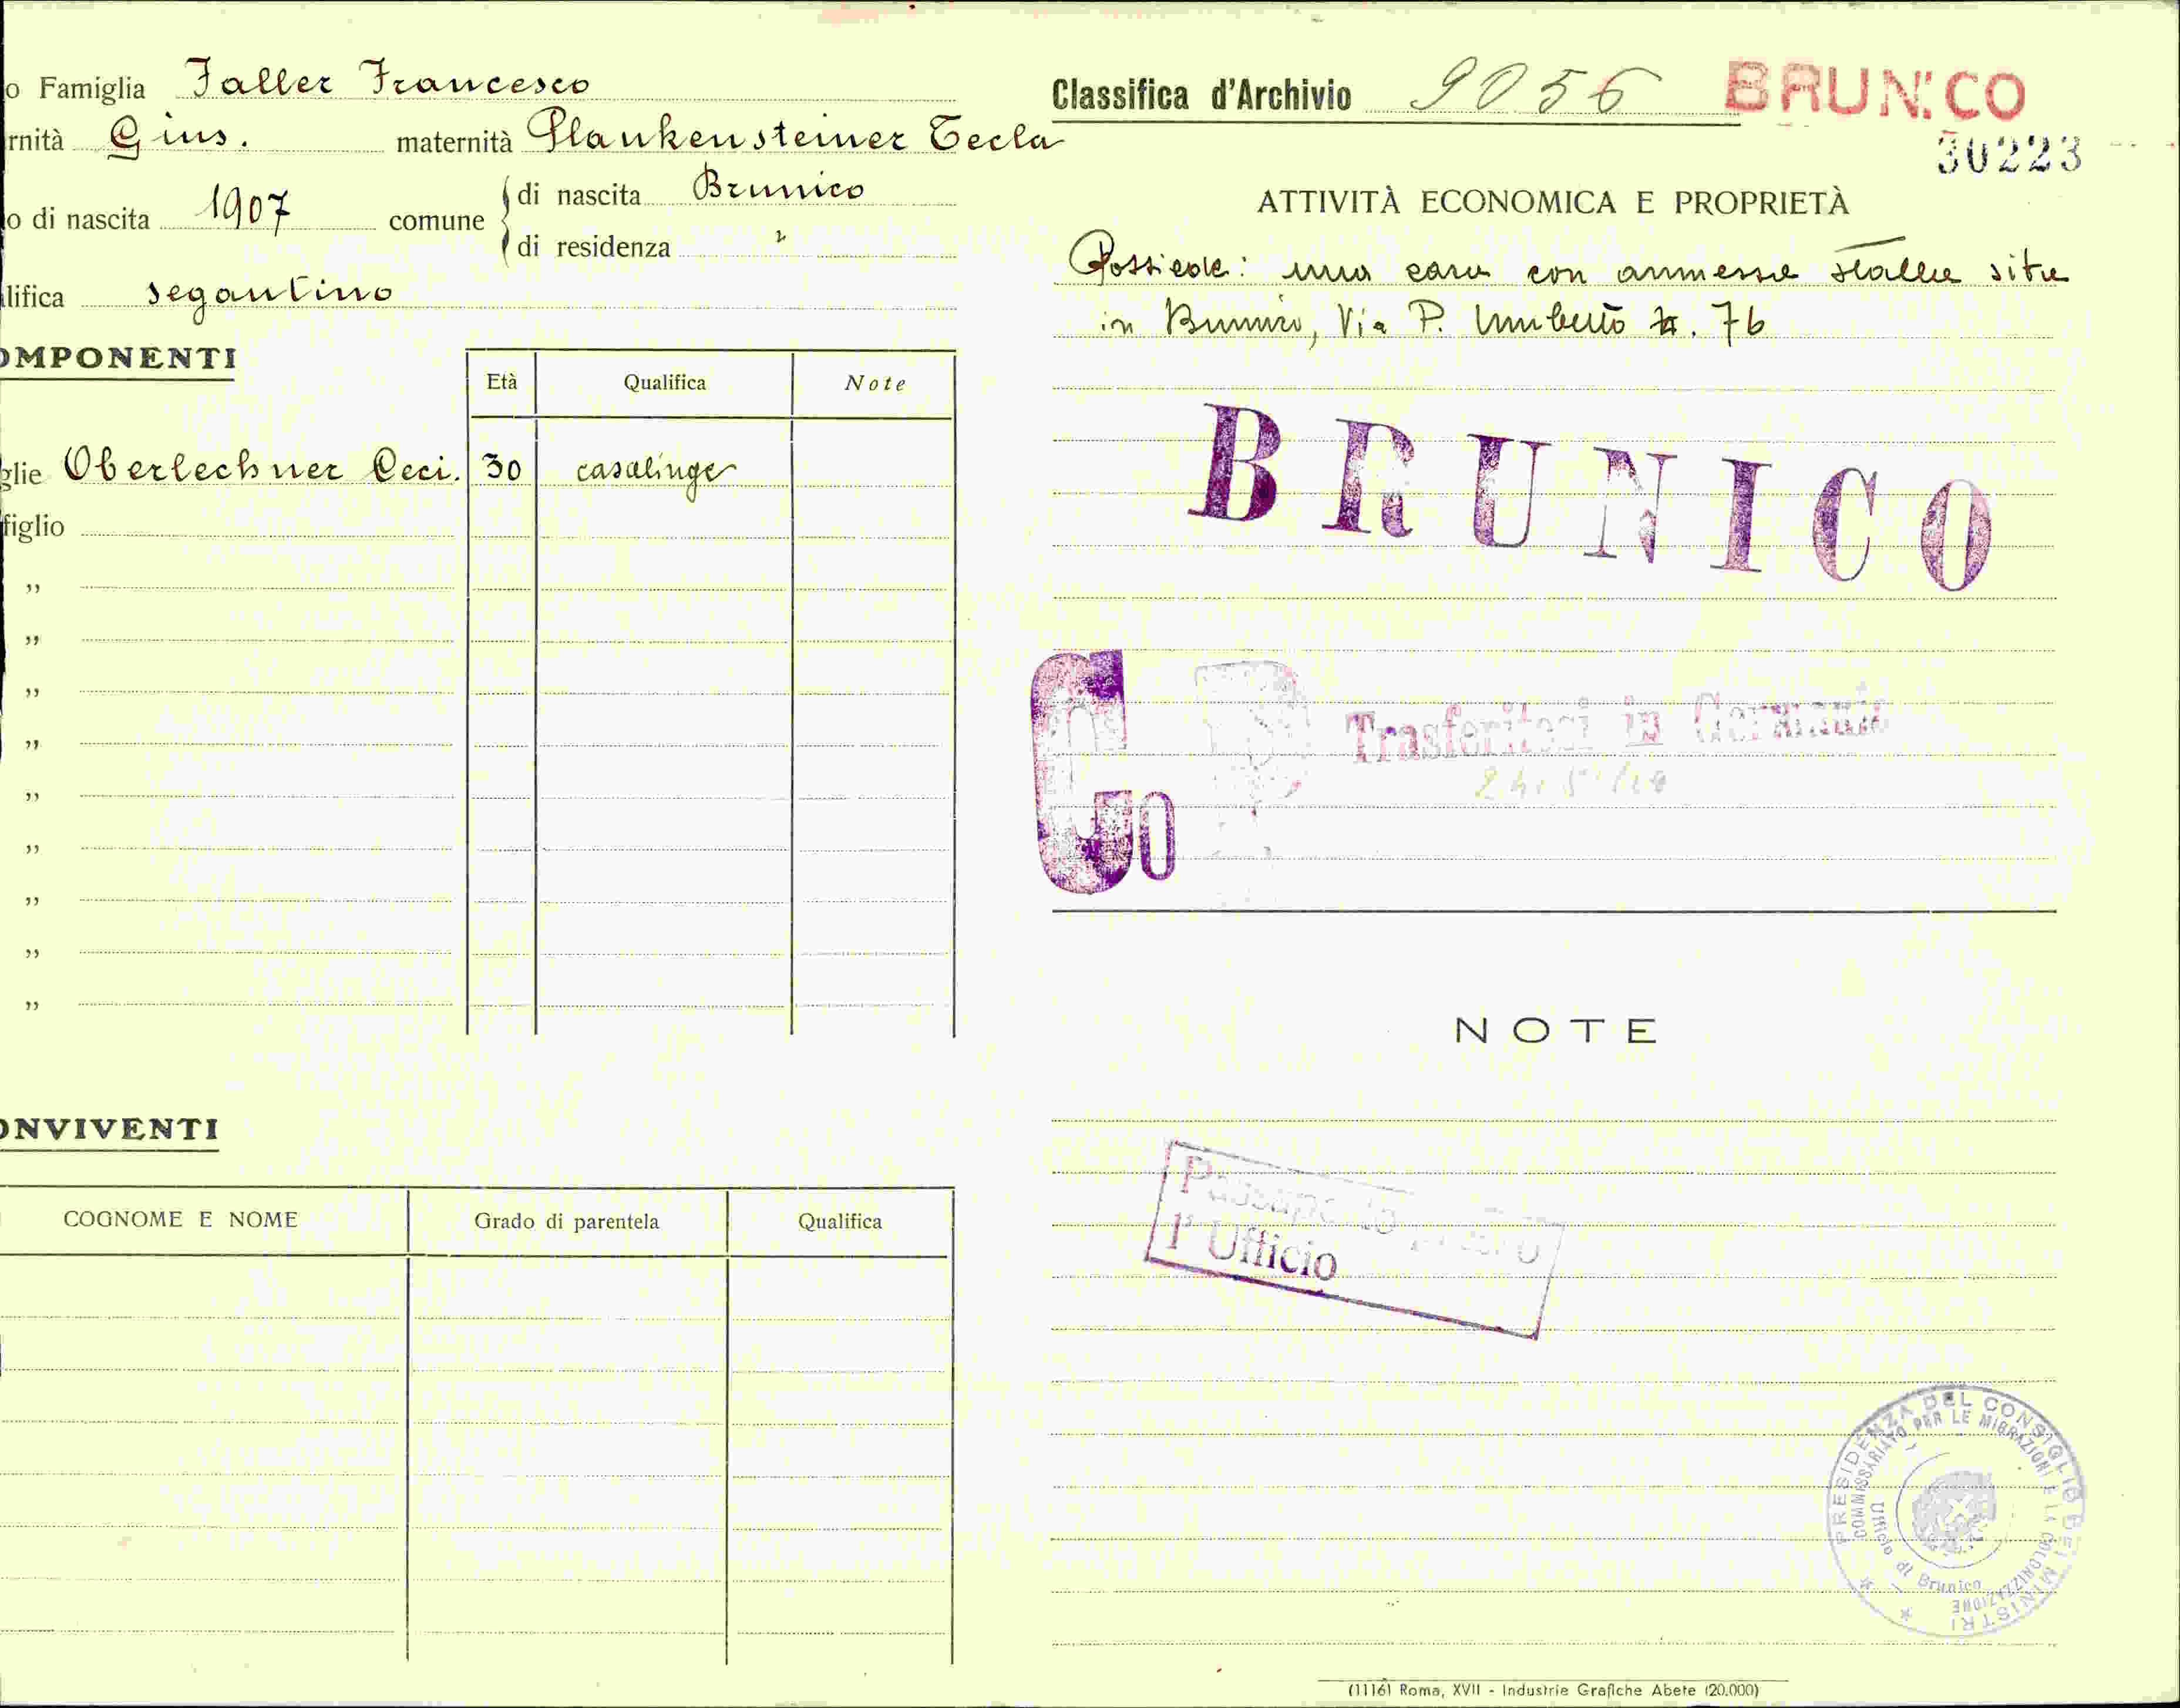 o Famiglia Faller Francesco
rnità Gius. maternità Plankensteiner Tecla
o di nascita 1907 comune di nascita Brunico
di residenza "
lifica segantino
OMPONENTI
Età Qualifica Note
glie Oberlechner Ceci. 30 casalinga
figlio
"
"
"
"
"
"
"
"
"
ONVIVENTI
COGNOME E NOME Grado di parentela Qualifica
Classifica d'Archivio 9056 BRUNICO
30223
ATTIVITÀ ECONOMICA E PROPRIETÀ
Possiede: una casa con annessa stalla sita
in Brunico, Via P. Umberto N. 76
BRUNICO
Trasferitosi in Germania
NOTE
l'Ufficio
PRESIDENZA DEL CONSIGLIO DEI MINISTRI
COMMISSARIATO PER LE MIGRAZIONI E LA COLONIZZAZIONE
Ufficio di Brunico
(1116) Roma, XVII - Industrie Grafiche Abete (20.000)